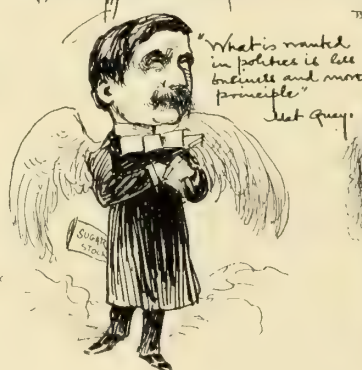 "What is wanted
in politics is less
business and more
principle"
Mat Quay.
SUGAR
STOCK